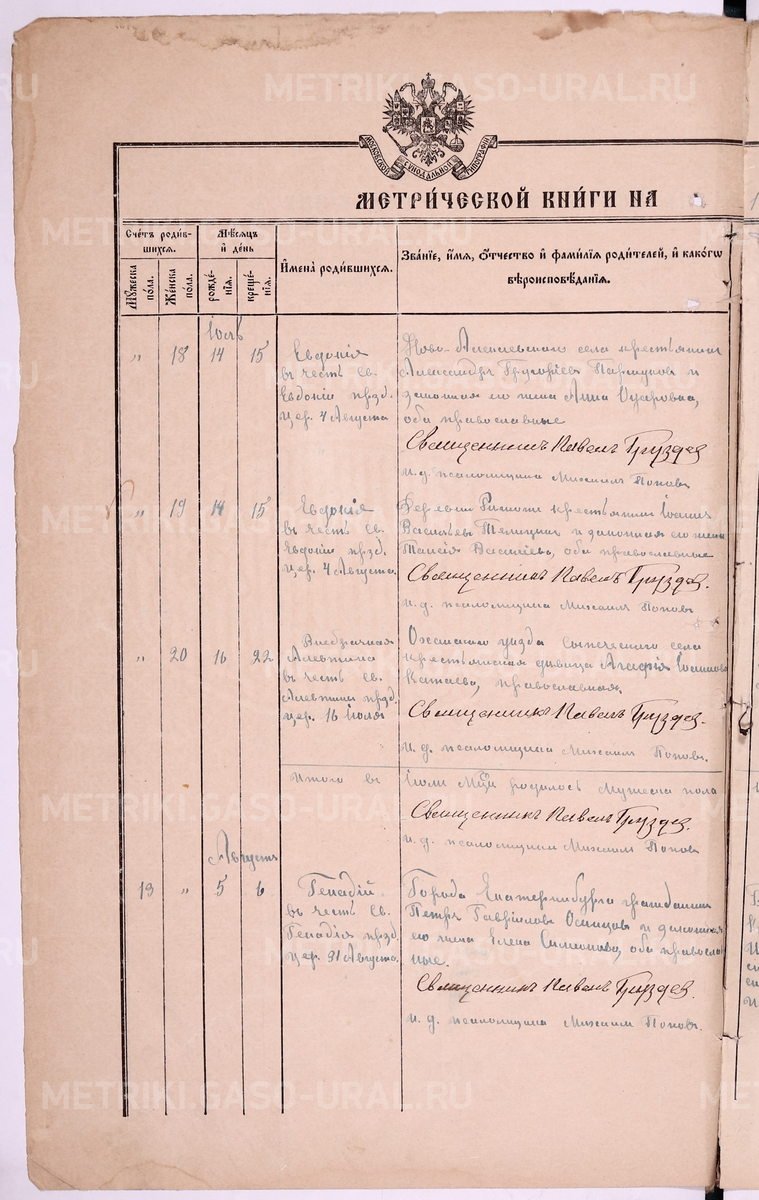 METRIKI.GASO-URAL.RU
МОСКОВСКОЙ СѴНОДАЛЬНОЙ ТИПОГРАФІИ
МЕТРИ́ЧЕСКОЙ КНИ́ГИ НА
Сче́тъ роди́вшихся.
Мꙋ́жеска по́ла.
Же́нска по́ла.
Мѣ́сяцъ и҆ де́нь
рожде́нїѧ.
креще́нїѧ.
И҆мена̀ роди́вшихся.
Зва́нїе, и҆́мѧ, ѻ҆́тчество и҆ фами́лїѧ роди́телей, и҆ како́гѡ
вѣроисповѣ́данїѧ.
Іюль
" 18 14 15
Евдокія
въ честь св.
Евдокіи празд.
цер. 4 Августа
села крестьянинъ
Александръ Григоріевъ и
законная его жена Анна
оба православные
Священникъ Павелъ Груздев
и. д. псаломщика Михаилъ Поповъ
" 19 14 15
Евдокія
въ честь св.
Евдокіи празд.
цер. 4 Августа.
крестьянин Іоаннъ
Васильевъ и законная его жена
Таисія Василіева, оба православные
Священникъ Павелъ Груздев.
и. д. псаломщика Михаилъ Поповъ
" 20 16 22
Внебрачная
Алевтина
въ честь св.
Алевтины празд.
цер. 16 Іюля
уѣзда села
крестьянская дѣвица Агафія Іоаннова
Катаева, православная.
Священникъ Павелъ Груздев.
и. д. псаломщика Михаилъ Поповъ.
Итого въ Іюлѣ мцѣ родилось мужеска пола
Священникъ Павелъ Груздев.
и. д. псаломщика Михаилъ Поповъ
Августъ
13 " 5 6
Генадій
въ честь св.
Генадія празд.
цер. 31 Августа.
Города Екатеринбурга гражданин
Петръ Гавріиловъ Осинцов и законная
его жена Елена Симеонова, оба православные.
Священникъ Павелъ Груздев.
и. д. псаломщика Михаилъ Поповъ.